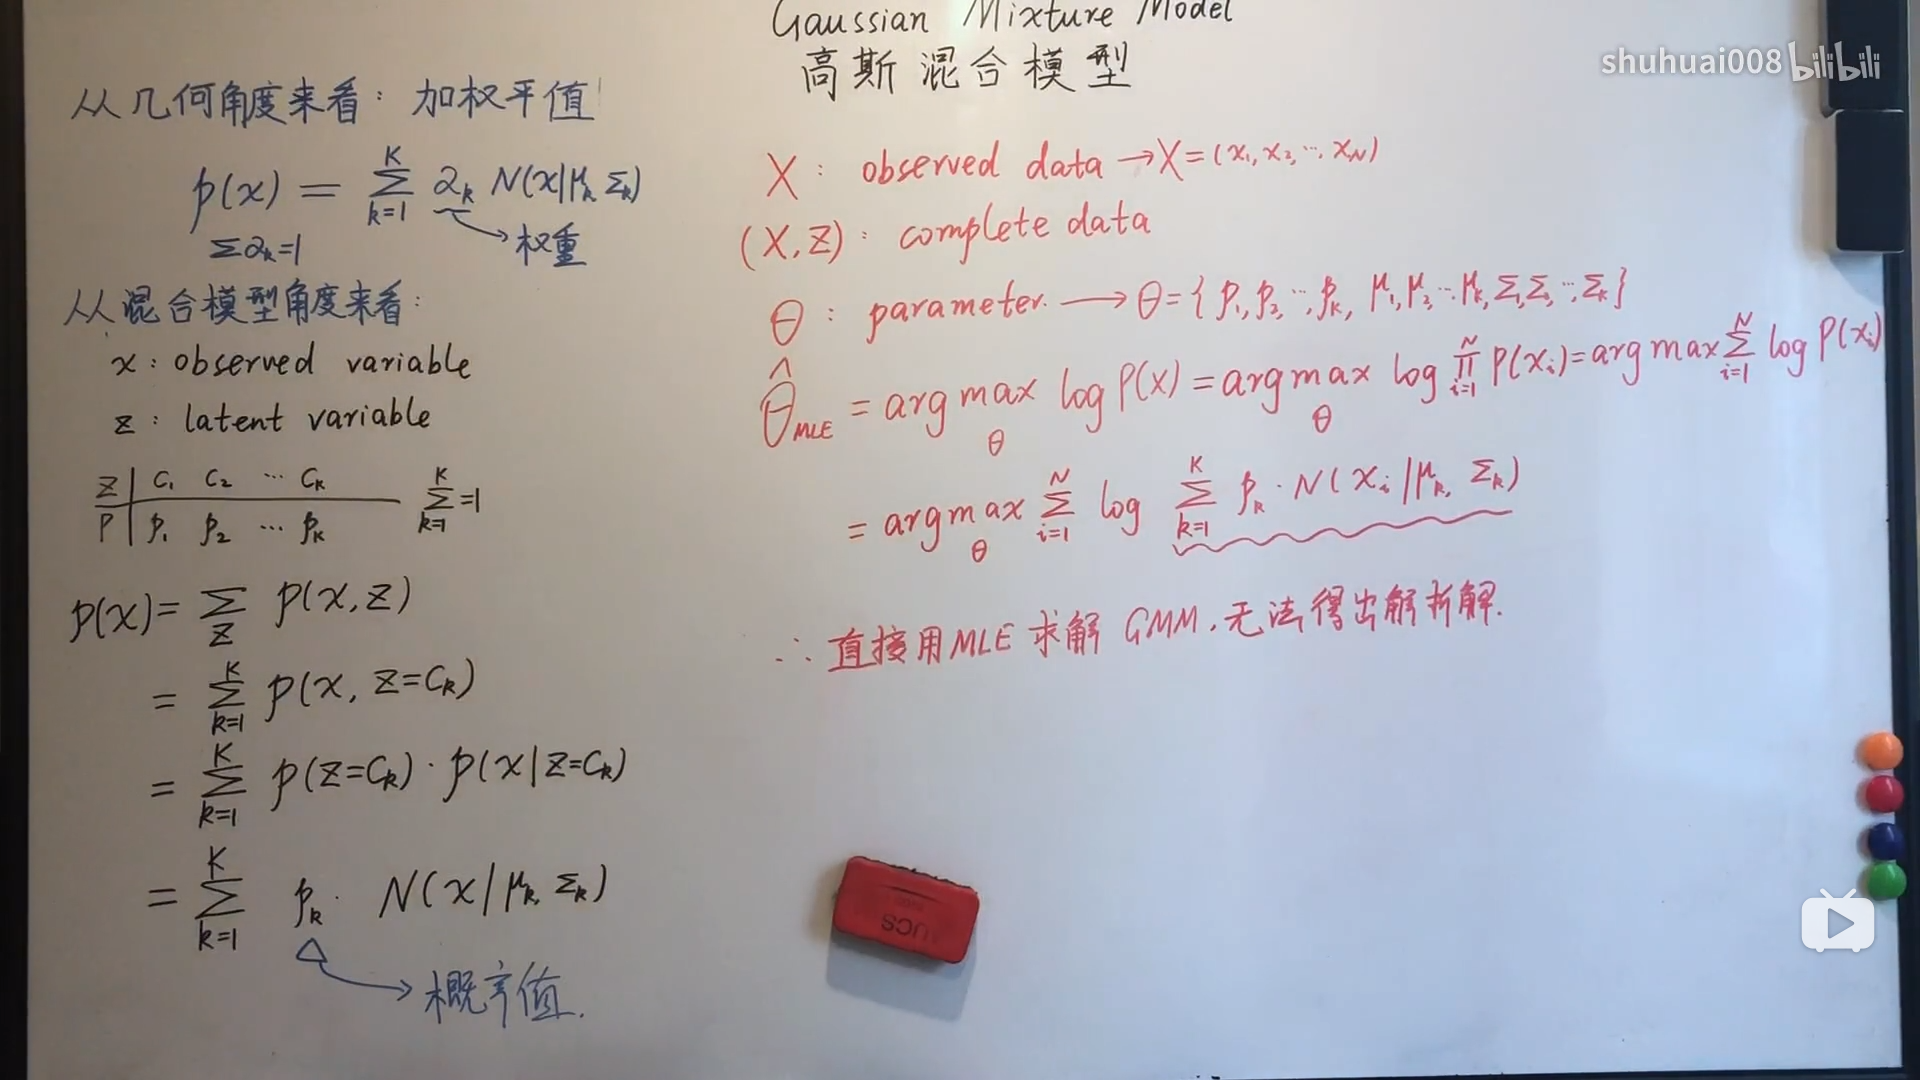 Gaussian Mixture Model
高斯混合模型
shuhuai008 bilibili
从几何角度来看: 加权平值
p(x) = ∑_{k=1}^{K} α_k N(x|μ_k, Σ_k)
∑α_k=1
权重
从混合模型角度来看:
x: observed variable
z: latent variable
z | C₁ C₂ ⋯ C_k
p | p₁ p₂ ⋯ p_k
∑_{k=1}^{K} =1
p(x)= ∑_z p(x,z)
= ∑_{k=1}^{K} p(x, z=C_k)
= ∑_{k=1}^{K} p(z=C_k)·p(x|z=C_k)
= ∑_{k=1}^{K} p_k· N(x|μ_k, Σ_k)
概率值.
X: observed data → X=(x₁,x₂,⋯,x_N)
(X,Z): complete data
θ: parameter. → θ={p₁,p₂,⋯,p_k, μ₁,μ₂,⋯μ_k,Σ₁,Σ₂,⋯,Σ_k}
θ̂_MLE = arg max_θ log P(X) = arg max_θ log ∏_{i=1}^{N} P(x_i) = arg max ∑_{i=1}^{N} log P(x_i)
= arg max_θ ∑_{i=1}^{N} log ∑_{k=1}^{K} p_k·N(x_i|μ_k, Σ_k)
∴ 直接用MLE求解 GMM,无法得出解析解.
UCS